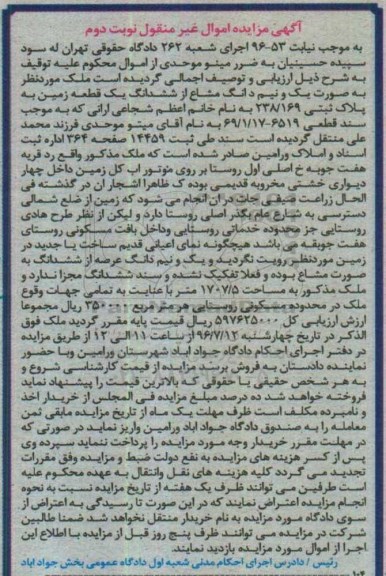 آگهی مزایده اموال غیر منقول نوبت دوم
به موجب نیابت ۵۳-۹۶ اجرای شعبه ۲۶۲ دادگاه حقوقی تهران له سود
سپیده حسینیان به ضرر مینو موحدی از اموال محکوم علیه توقیف
به شرح ذیل ارزیابی و توصیف اجمالی گردیده است ملک موردنظر
به صورت یک و نیم دانگ مشاع از ششدانگ یک قطعه زمین به
پلاک ثبتی ۲۳۸/۱۶۹ به نام خانم اعظم شجاعی ارانی که به موجب
سند قطعی ۶۵۱۹-۶۹/۱/۱۷ به نام آقای مینو موحدی فرزند محمد
علی منتقل گردیده است سند طی ثبت ۱۴۴۵۹ صفحه ۳۶۴ اداره ثبت
اسناد و املاک ورامین صادر شده است که ملک مذکور واقع در قریه
هفت جوبه خ اصلی اول روستا بر روی موتور اب کل زمین داخل چهار
دیواری خشتی مخروبه قدیمی بوده ک ظاهرا اشجار ان در گذشته فی
الحال زراعت صیفی جات در ان انجام می شود که زمین از ضلع شمالی
دسترسی به شارع عام بگذر اصلی روستا دارد و لیکن از نظر طرح هادی
روستایی جز محدوده خدماتی روستایی وداخل بافت مسکونی روستای
هفت جوبقه می باشد هیچگونه نمای اعیانی قدیم ساخت یا جدید در
زمین موردنظر رویت نگردید و یک و نیم دانگ عرصه از ششدانگ به
صورت مشاع بوده و فعلا تفکیک نشده و سند ششدانگ مجزا ندارد و
ملک مذکور به مساحت ۱۷۰۷/۵ متر با عنایت به تمامی جهات وقوع
ملک در محدوده مسکونی روستایی هر متر مربع ۳۵۰۰۰۰ ریال مجموعا
ارزش ارزیابی کل ۵۹۷۶۲۵۰۰۰ ریال قیمت پایه مقرر گردید ملک فوق
الذکر در تاریخ چهارشنبه ۹۶/۷/۱۲ از ساعت ۱۱ الی ۱۲ از طریق مزایده
در دفتر اجرای احکام دادگاه جواد اباد شهرستان ورامین وبا حضور
نماینده دادستان به فروش برسد مزایده از قیمت کارشناسی شروع و
به هر شخص حقیقی یا حقوقی که بالاترین قیمت را پیشنهاد نماید
فروخته خواهد شد ده درصد مبلغ مزایده فی المجلس از خریدار اخذ
و نامبرده مکلف است ظرف مهلت یک ماه از تاریخ مزایده مابقی ثمن
معامله را به صندوق دادگاه جواد اباد ورامین واریز نماید در صورتی که
در مهلت مقرر خریدار وجه مورد مزایده را پرداخت ننماید سپرده وی
پس از کسر هزینه های مزایده به نفع دولت ضبط و مزایده وفق مقررات
تجدید می گردد کلیه هزینه های نقل وانتقال به عهده محکوم علیه
است طرفین می توانند ظرف یک هفته از تاریخ مزایده نسبت به نحوه
انجام مزایده اعتراض نمایند که در این صورت تا رسیدگی به اعتراض از
سوی دادگاه مورد مزایده به نام خریدار منتقل نخواهد شد ضمنا طالبین
شرکت در مزایده می توانند ظرف پنج روز قبل از مزایده با اطلاع این
اجرا از اموال مورد مزایده بازدید نمایند.
رئیس / دادرس اجرای احکام مدنی شعبه اول دادگاه عمومی بخش جواد اباد